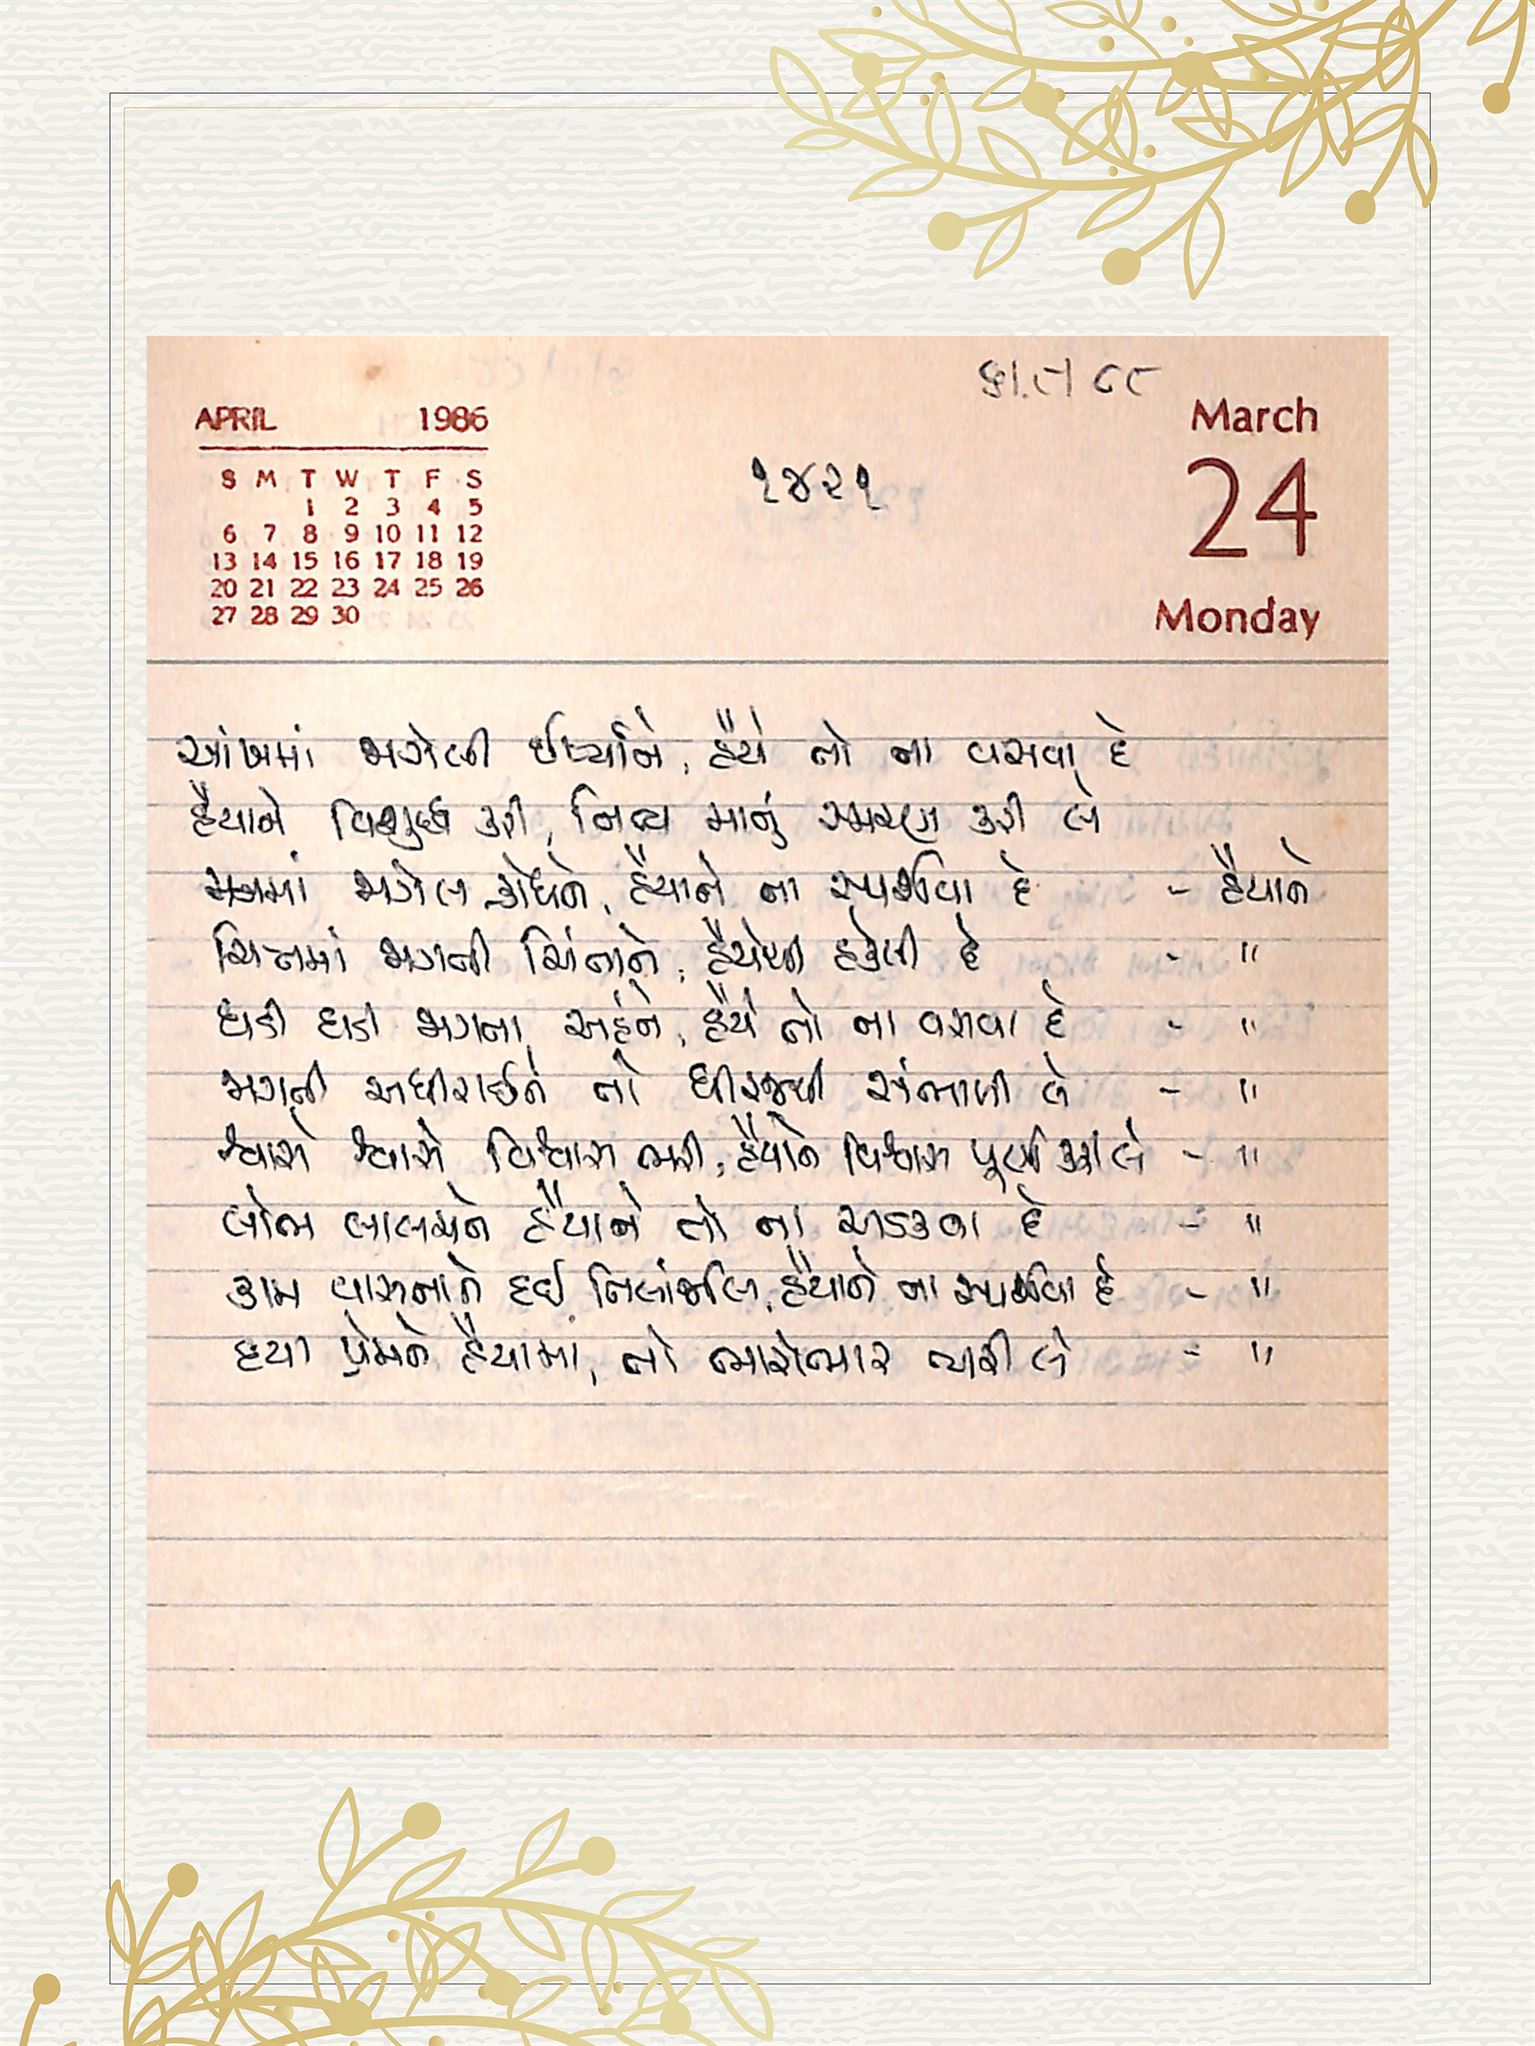 ફા.લ ૮૮
APRIL 1986
S M T W T F S
1 2 3 4 5
6 7 8 9 10 11 12
13 14 15 16 17 18 19
20 21 22 23 24 25 26
27 28 29 30
૧૪૨૧
March
24
Monday
આંખમાં જાગેલી ઈર્ષ્યાને, હૈયે તો ના વસવા દે
હૈયાને વિશુદ્ધ કરી, નિત્ય માનું સ્મરણ કરી લે
મનમાં જાગેલ ક્રોધને, હૈયાને ના સ્પર્શવા દે - હૈયાને
ચિત્તમાં જાગતી ચિંતાને, હૈયેથી હડસેલી દે - "
ઘડી ઘડી જાગતા અહંને, હૈયે તો ના વસવા દે - "
જાગતી અધીરાઈને તો ધીરજથી સંભાળી લે - "
શ્વાસે શ્વાસે વિશ્વાસ ભરી, હૈયાને વિશ્વાસ પૂર્ણ કરી લે - "
લોભ લાલચને હૈયાને તો ના અડકવા દે - "
કામ વાસનાને દઈ તિલાંજલિ, હૈયાને ના સ્પર્શવા દે - "
દયા પ્રેમને હૈયામાં, તો ભારોભાર ભરી લે - "